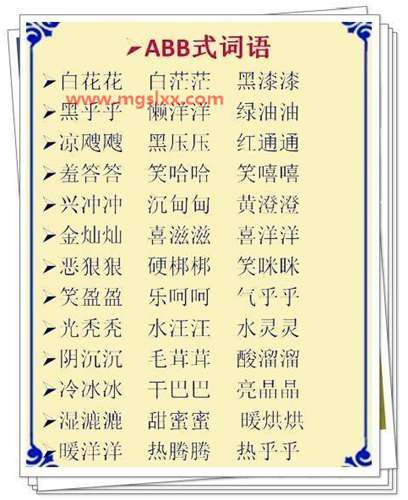 ➢ABB式词语
➢白花花 白茫茫 黑漆漆
www.mgslxx.com
➢黑乎乎 懒洋洋 绿油油
➢凉飕飕 黑压压 红通通
➢羞答答 笑哈哈 笑嘻嘻
➢兴冲冲 沉甸甸 黄澄澄
➢金灿灿 喜滋滋 喜洋洋
➢恶狠狠 硬梆梆 笑咪咪
➢笑盈盈 乐呵呵 气乎乎
➢光秃秃 水汪汪 水灵灵
➢阴沉沉 毛茸茸 酸溜溜
➢冷冰冰 干巴巴 亮晶晶
➢湿漉漉 甜蜜蜜 暖烘烘
➢暖洋洋 热腾腾 热乎乎